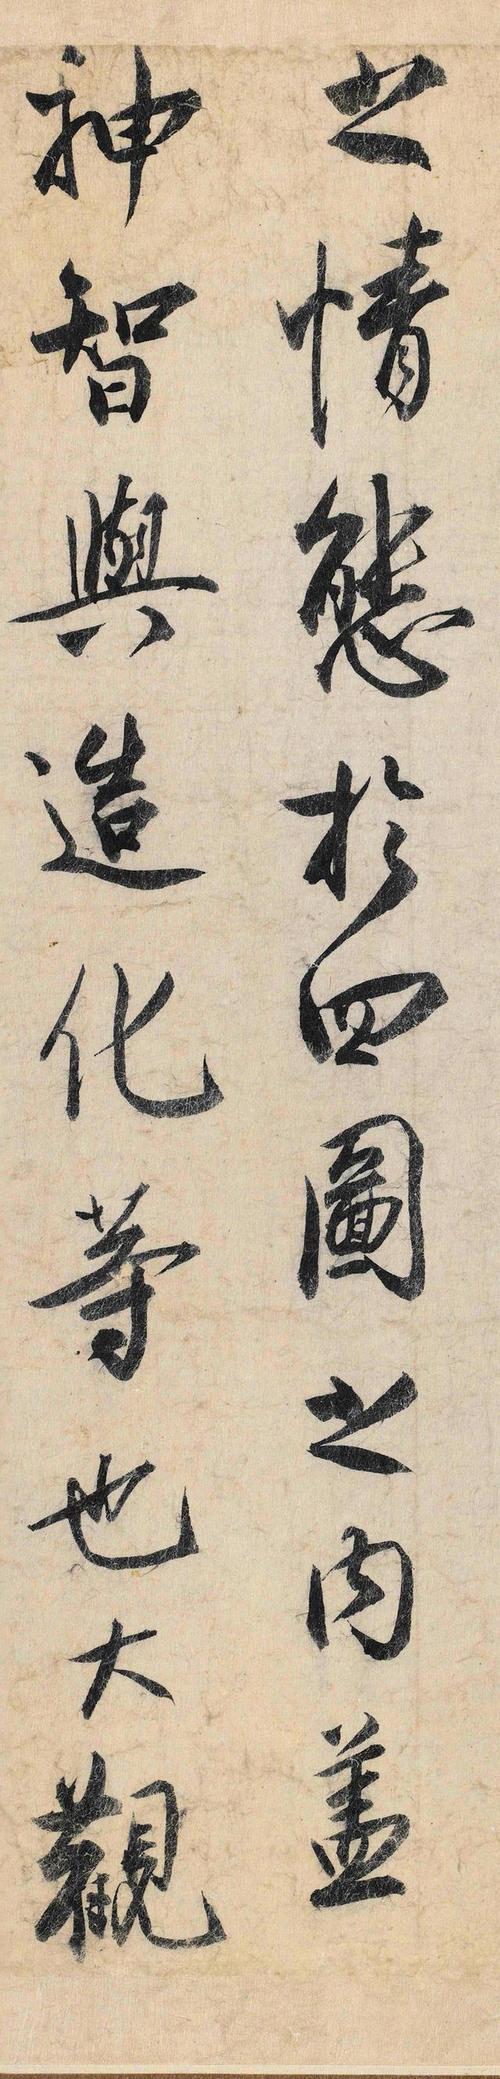 之情態於四圖之内盖
神智與造化等也大觀